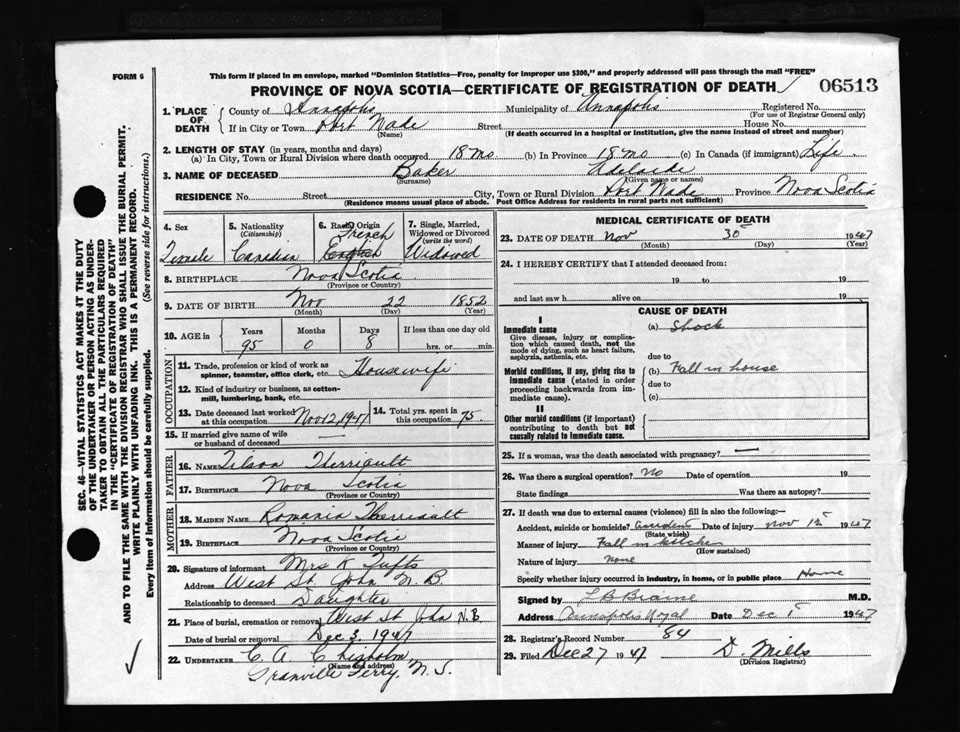 FORM 6
This form if placed in an envelope, marked "Dominion Statistics—Free, penalty for improper use $300," and properly addressed will pass through the mail "FREE"
PROVINCE OF NOVA SCOTIA—CERTIFICATE OF REGISTRATION OF DEATH
06513
1. PLACE OF DEATH
County of Annapolis Municipality of Annapolis Registered No.
(For use of Registrar General only)
If in City or Town Port Wade Street House No.
(Name) (If death occurred in a hospital or institution, give the name instead of street and number)
2. LENGTH OF STAY (in years, months and days)
(a) In City, Town or Rural Division where death occurred 18 mo. (b) In Province 18 mo (c) In Canada (if immigrant) Life.
3. NAME OF DECEASED Baker Adelaide
(Surname) (Given name or names)
RESIDENCE No. Street City, Town or Rural Division Port Wade Province Nova Scotia
(Residence means usual place of abode. Post Office Address for residents in rural parts not sufficient)
4. Sex
Female
5. Nationality
(Citizenship)
Canadian
6. Racial Origin
French
English
7. Single, Married, Widowed or Divorced
(write the word)
Widowed
8. BIRTHPLACE Nova Scotia
(Province or Country)
9. DATE OF BIRTH Nov 22 1852
(Month) (Day) (Year)
10. AGE in
Years Months Days If less than one day old
95 0 8 hrs. or min.
OCCUPATION
11. Trade, profession or kind of work as spinner, teamster, office clerk, etc. Housewife
12. Kind of industry or business, as cotton-mill, lumbering, bank, etc.
13. Date deceased last worked at this occupation Nov 12, 1947
14. Total yrs. spent in this occupation 75.
15. If married give name of wife or husband of deceased —
FATHER
16. NAME Tilson Therriault
17. BIRTHPLACE Nova Scotia
(Province or Country)
MOTHER
18. MAIDEN NAME Romania Therriault
19. BIRTHPLACE Nova Scotia
(Province or Country)
20. Signature of informant Mrs K Tufts
Address West St. John N. B.
Relationship to deceased Daughter
21. Place of burial, cremation or removal West St John N.B.
Date of burial or removal Dec 3, 1947
22. UNDERTAKER C. A. Chisholm,
(Name and address)
Granville Ferry, N. S.
MEDICAL CERTIFICATE OF DEATH
23. DATE OF DEATH Nov 30 1947
(Month) (Day) (Year)
24. I HEREBY CERTIFY that I attended deceased from:
19 to 19
and last saw h alive on 19
CAUSE OF DEATH
I
Immediate cause
Give disease, injury or complication which caused death, not the mode of dying, such as heart failure, asphyxia, asthenia, etc.
(a) Shock
due to
Morbid conditions, if any, giving rise to immediate cause (stated in order proceeding backwards from immediate cause).
(b) Fall in house
due to
(c)
II
Other morbid conditions (if important) contributing to death but not causally related to immediate cause.
25. If a woman, was the death associated with pregnancy? —
26. Was there a surgical operation? No Date of operation 19
State findings Was there an autopsy?
27. If death was due to external causes (violence) fill in also the following:—
Accident, suicide or homicide? Date of injury Nov 12 1947
(State which)
Manner of injury Fall in kitchen
(How sustained)
Nature of injury none
Specify whether injury occurred in industry, in home, or in public place Home
Signed by L B Braine M.D.
Address Annapolis Royal Date Dec 1 1947
28. Registrar's Record Number 84
29. Filed Dec 27 1947 D. Mills
(Division Registrar)
SEC. 46—VITAL STATISTICS ACT MAKES IT THE DUTY
OF THE UNDERTAKER OR PERSON ACTING AS UNDER-
TAKER TO OBTAIN ALL THE PARTICULARS REQUIRED
IN THE "CERTIFICATE OF REGISTRATION OF DEATH"
AND TO FILE THE SAME WITH THE DIVISION REGISTRAR WHO SHALL ISSUE THE BURIAL PERMIT.
WRITE PLAINLY WITH UNFADING INK. THIS IS A PERMANENT RECORD.
Every item of information should be carefully supplied. (See reverse side for instructions.)